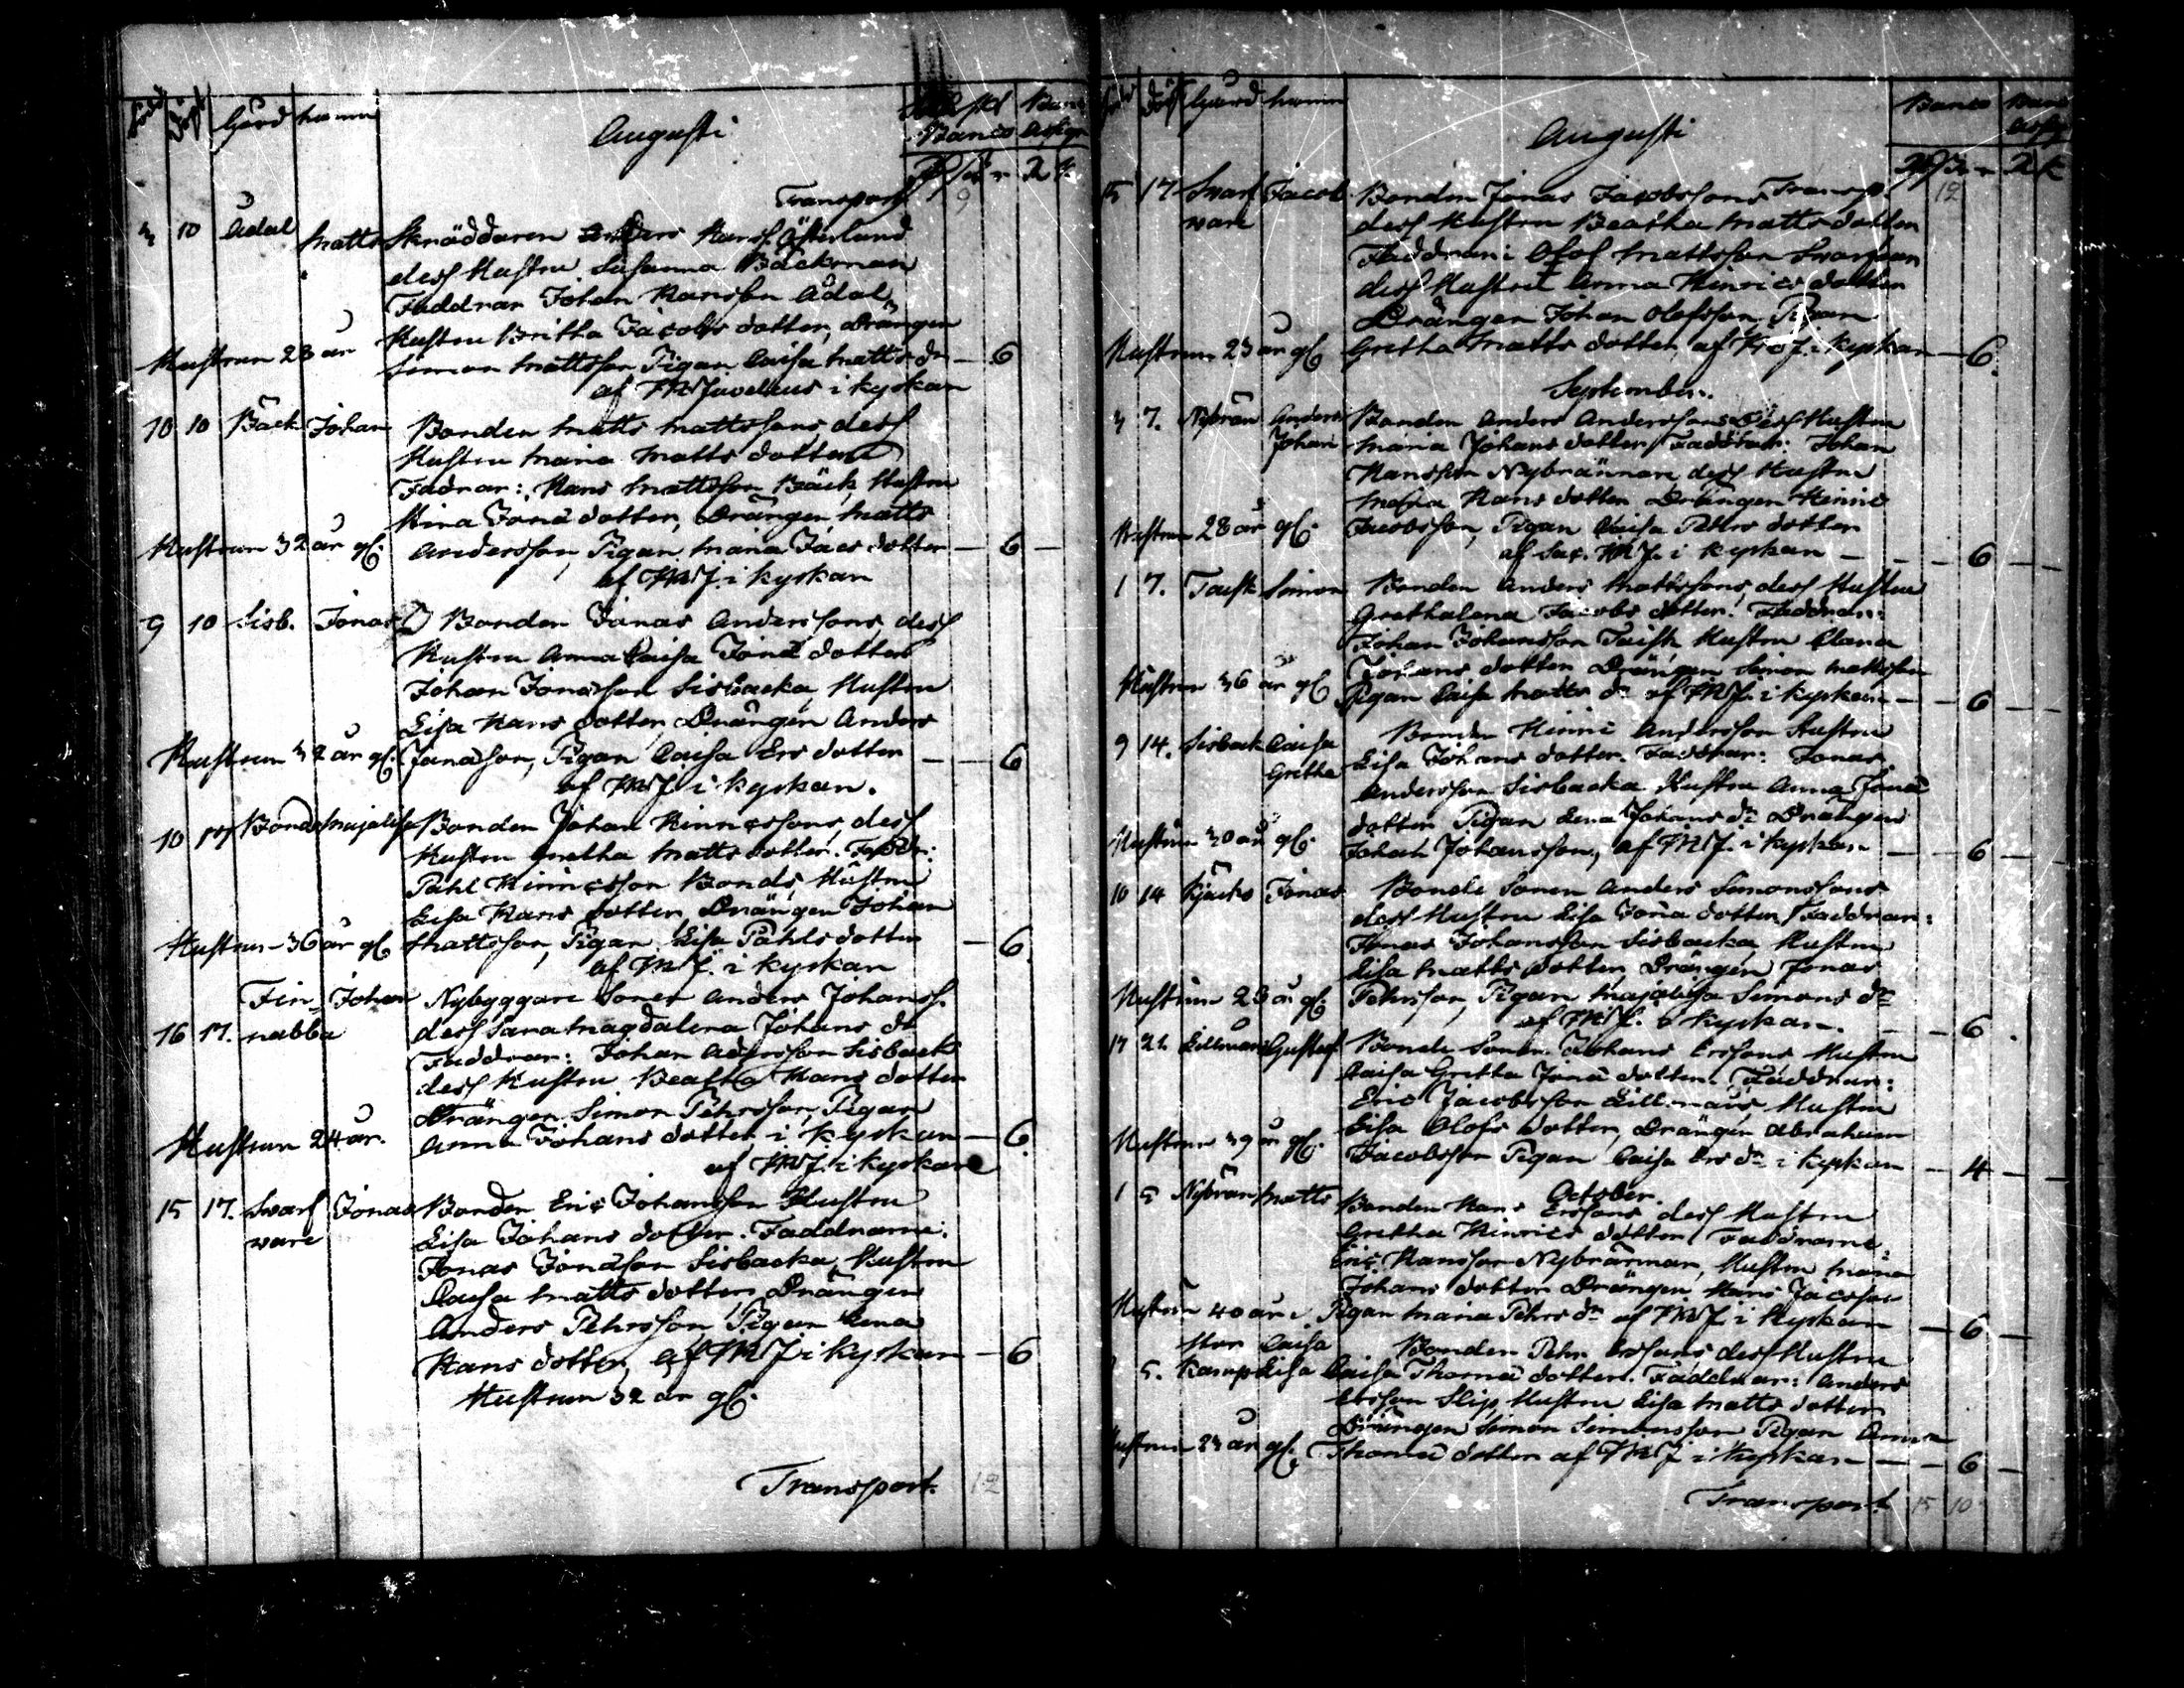 Född Döpt Gård hamn Augusti Banco Assign
Transport 9
3 10 Ådal Matts Skräddaren Anders Hanss. Österlund
dess Hustru Susanna Bäckman
Faddrar Johan Hansson Ådal,
Hustru Britha Jacobs dotter, Drängen
Hustrun 28 år Simon Mattsson Pigan Caisa Matts dr — 6
af Juvelius i kyrkan
10 10 Bäck Johan Bonden Matts Mattssons dess
Hustru Maria Matts dotter
Fadrar: Hans Mattsson Bäck, Hustru
Stina Jona dotter, Drängen Matts
Hustrun 32 år gl. Andersson, Pigan Maria Jacs dotter — 6 —
af MJ. i kyrkan
9 10 Sisb. Jonas Bonden Jonas Anderssons, dess
Hustru Anna Caisa Jona dotter
Johan Jonasson Sisbacka, Hustru
Lisa Hans dotter, Drängen Anders
Hustrun 32 år gl. Jonasson, Pigan Caisa Ers dotter — 6
af MJ i kyrkan.
10 Bonds Majalisa Bonden Johan Hinricssons, dess
Hustru Gretha Matts dotter. Faddr:
Påhl Hinricsson Bonds, Hustru
Lisa Hans dotter, Drängen Johan
Hustrun 36 år gl. Mattsson, Pigan Lisa Påhls dotter — 6
af MJ. i kyrkan
Fin- Johan Nybyggare Sonen Anders Johanss.
16 17. nabba dess Sara Magdalena Johans dr
Faddrar: Johan Andersson Sisback
dess Hustru Beatha Hans dotter
Drängen Simon Pehrsson, Pigan
Hustrun 24 år. Anna Johans dotter i kyrkan — 6
af MJ. i kyrkan
15 17. Svarf Jonas Bonden Eric Johansson Hustru
vare Lisa Johans dotter. Faddrarne:
Jonas Jonasson Sisbacka, Hustru
Caisa Matts dotter, Drängen
Anders Pehrsson Pigan Lena
Hans dotter, af MJ i kyrkan — 6
Hustrun 32 år gl.
Transport. 12
Född Döpt Gård hamn Augusti Banco
15 17 Svarf Jacob Bonden Jonas Jacobssons Transp. 12
vare dess Hustru Beatha Matts dotter
Faddrar: Olof Mattsson Svarfvar
dess Hustru Anna Hinrics dotter
Drängen Johan Olofsson Pigan
Hustrun 23 år gl. Gretha Matts dotter, af i kyrkan — 6.
September.
3 7. Nybrän Anders Bonden Anders Anderssons Dess Hustru
Johan Maria Johans dotter, Faddrar: Johan
Hansson Nybrännare dess Hustru
Maria Hans dotter Drängen Hinric
Hustrun 28 år gl. Jacobsson, Pigan Caisa Pehrs dotter
af Sac. MJ. i kyrkan — 6 —
1 7. Taisk Simon Bonden Anders Mattssons, dess Hustru
Grethalena Jacobs dotter. Faddrar:
Johan Johansson Taisk Hustru Clara
Johans dotter Drängen Simon Mattsson
Hustrun 36 år gl. Pigan Caisa Matts dr af MJ. i kyrkan — 6 —
9 14. Sisback Caisa Bonden Hinric Andersson Hustru
Gretha Lisa Johans dotter. Faddrar: Jonas
Andersson Sisbacka Hustru Anna Jona
dotter Pigan Lena Johans dr Drängen
Hustrun 30 år gl. Johan Johansson, af MJ. i kyrkan — 6 —
10 14 Jonas Bonde Sonen Anders Simonssons
dess Hustru Lisa Jona dotter, Faddrar:
Jonas Johansson Sisbacka, Hustru
Lisa Matts dotter, Drängen Jonas
Hustrun 23 år gl. Pehrsson, Pigan Majalisa Simons dr
af MJ. i kyrkan. — 6
17 21 Lillmars Gustaf Bonde Sonen Johans Erssons Hustru
Caisa Gretha Jona dotter. Faddrar:
Eric Jacobsson Lillmars Hustru
Lisa Olofs dotter, Drängen Abraham
Hustrun 39 år gl. Jacobsson Pigan Caisa Ers dr i kyrkan — 4 —
October.
1 5 Nybrän Matts Bonden Hans Erssons dess Hustru
Gretha Hinrics dotter, Faddrarne:
Eric Hansson Nybrännar, Hustru Maria
Johans dotter Drängen Hans Jacsson
Hustrun 40 år. Pigan Maria Pehrs dr af MJ i kyrkan — 6 —
Stor Caisa Bonden Pehr Erssons dess Hustru
5. Kamp Lisa Caisa Thoma dotter. Faddrar: Anders
Ersson Slip, Hustru Lisa Matts dotter
Drängen Simon Simonsson Pigan Anna
Hustrun 23 år gl. Thoma dotter af MJ i kyrkan — 6 —
Transport. 15 10